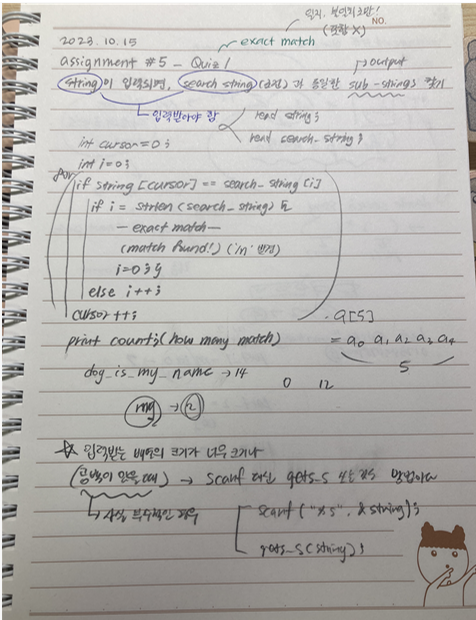 일치.
(포함 X)
NO.
2023.10.15
exact match
assignment #5 - Quiz 1
output
string이 입력되면, search string(패턴)과 동일한 sub-strings 찾기
입력받아야 함
read string;
read search_string;
int cursor=0;
int i=0;
for
if string[cursor] == search_string[i]
if i = strlen(search_string)
- exact match -
(match found!) ('m'번째)
i=0;
else i++;
cursor++;
a[5]
print count;(how many match)
= a0 a1 a2 a3 a4
5
dog_is_my_name → 14
0 12
my → 2
☆ 입력받는 배열의 크기가 너무 크거나
(공백이 있을 때) → scanf 대신 gets_s 쓰는 것도 방법이다
사실 부수적인 이유
scanf("%s", &string);
gets_s(string);